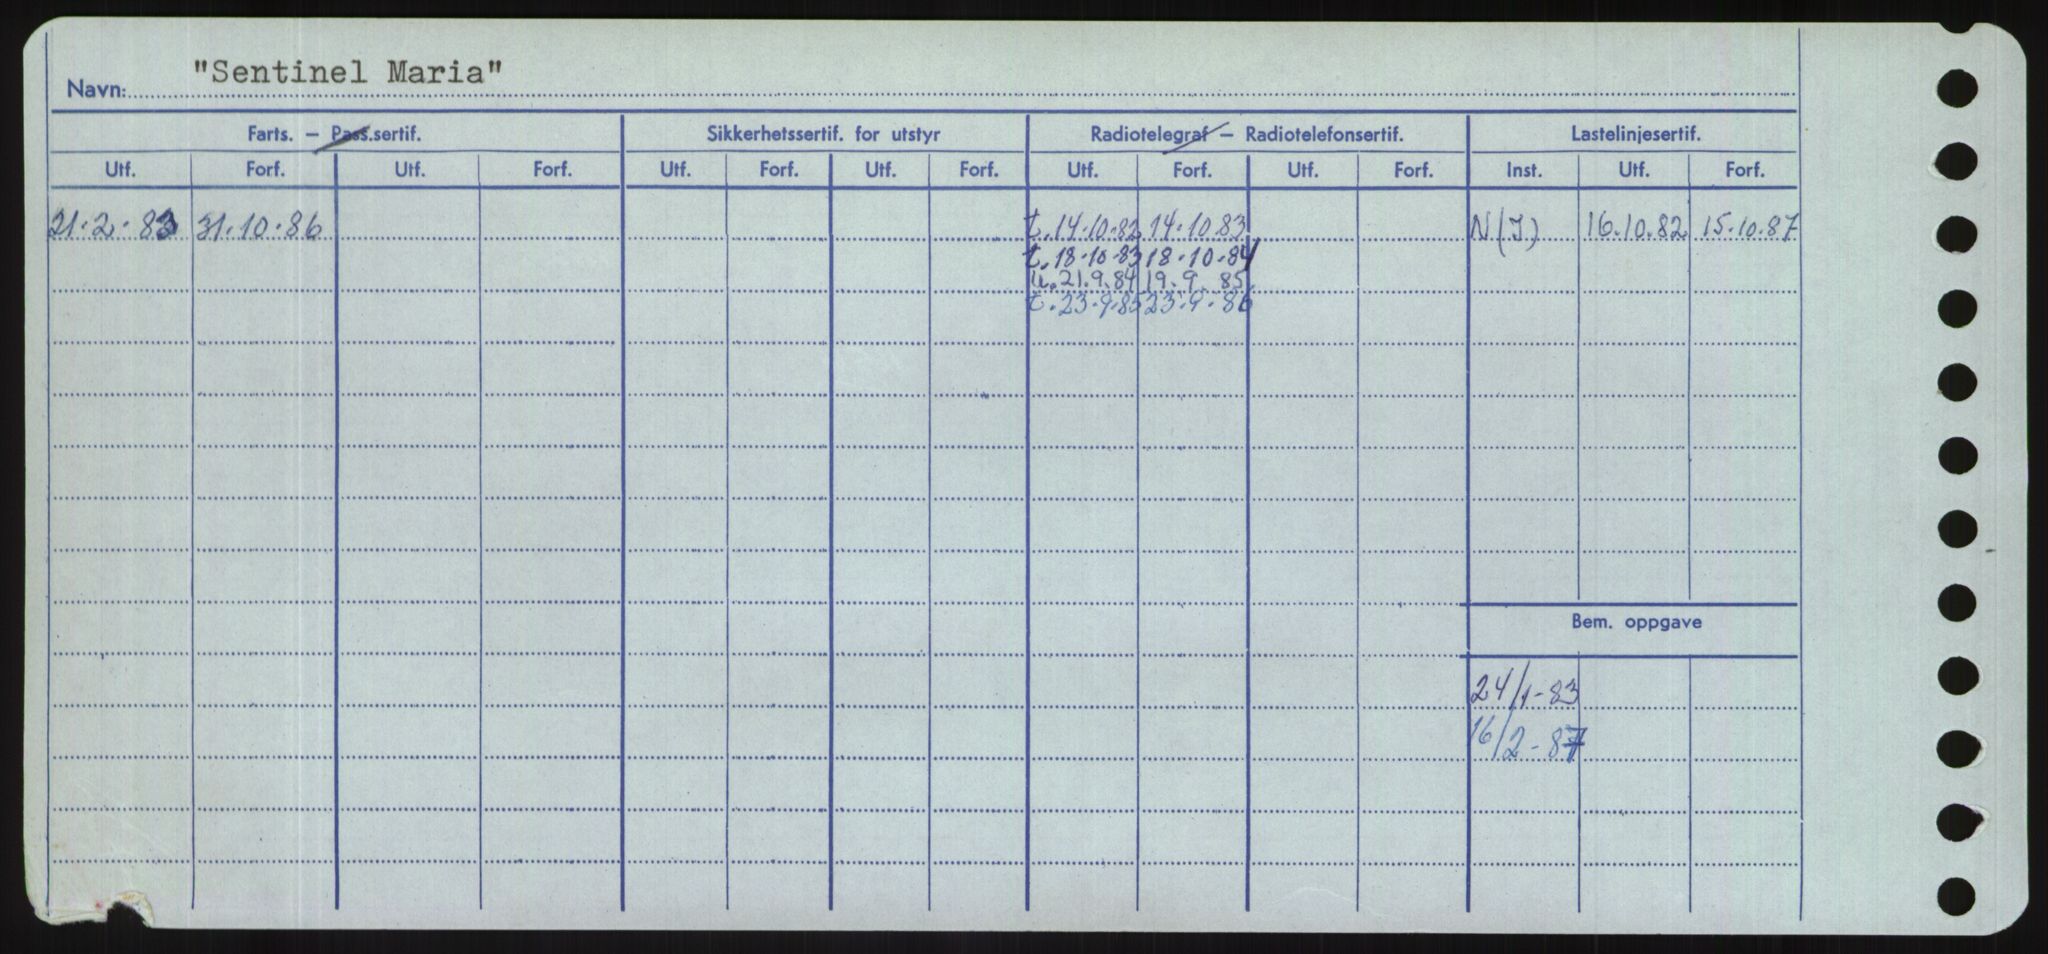 Navn: "Sentinel Maria"
Farts. – Pass.sertif. Sikkerhetssertif. for utstyr Radiotelegraf – Radiotelefonsertif. Lastelinjesertif.
Utf. Forf. Utf. Forf. Utf. Forf. Utf. Forf. Utf. Forf. Utf. Forf. Inst. Utf. Forf.
21.2.83 31.10.86 t.14.10.82 14.10.83 N(I) 16.10.82 15.10.87
t.18.10.83 18.10.84
21.9.84 19.9.85
t.23.9.85 23.9.86
Bem. oppgave
24/1-83
16/2-87